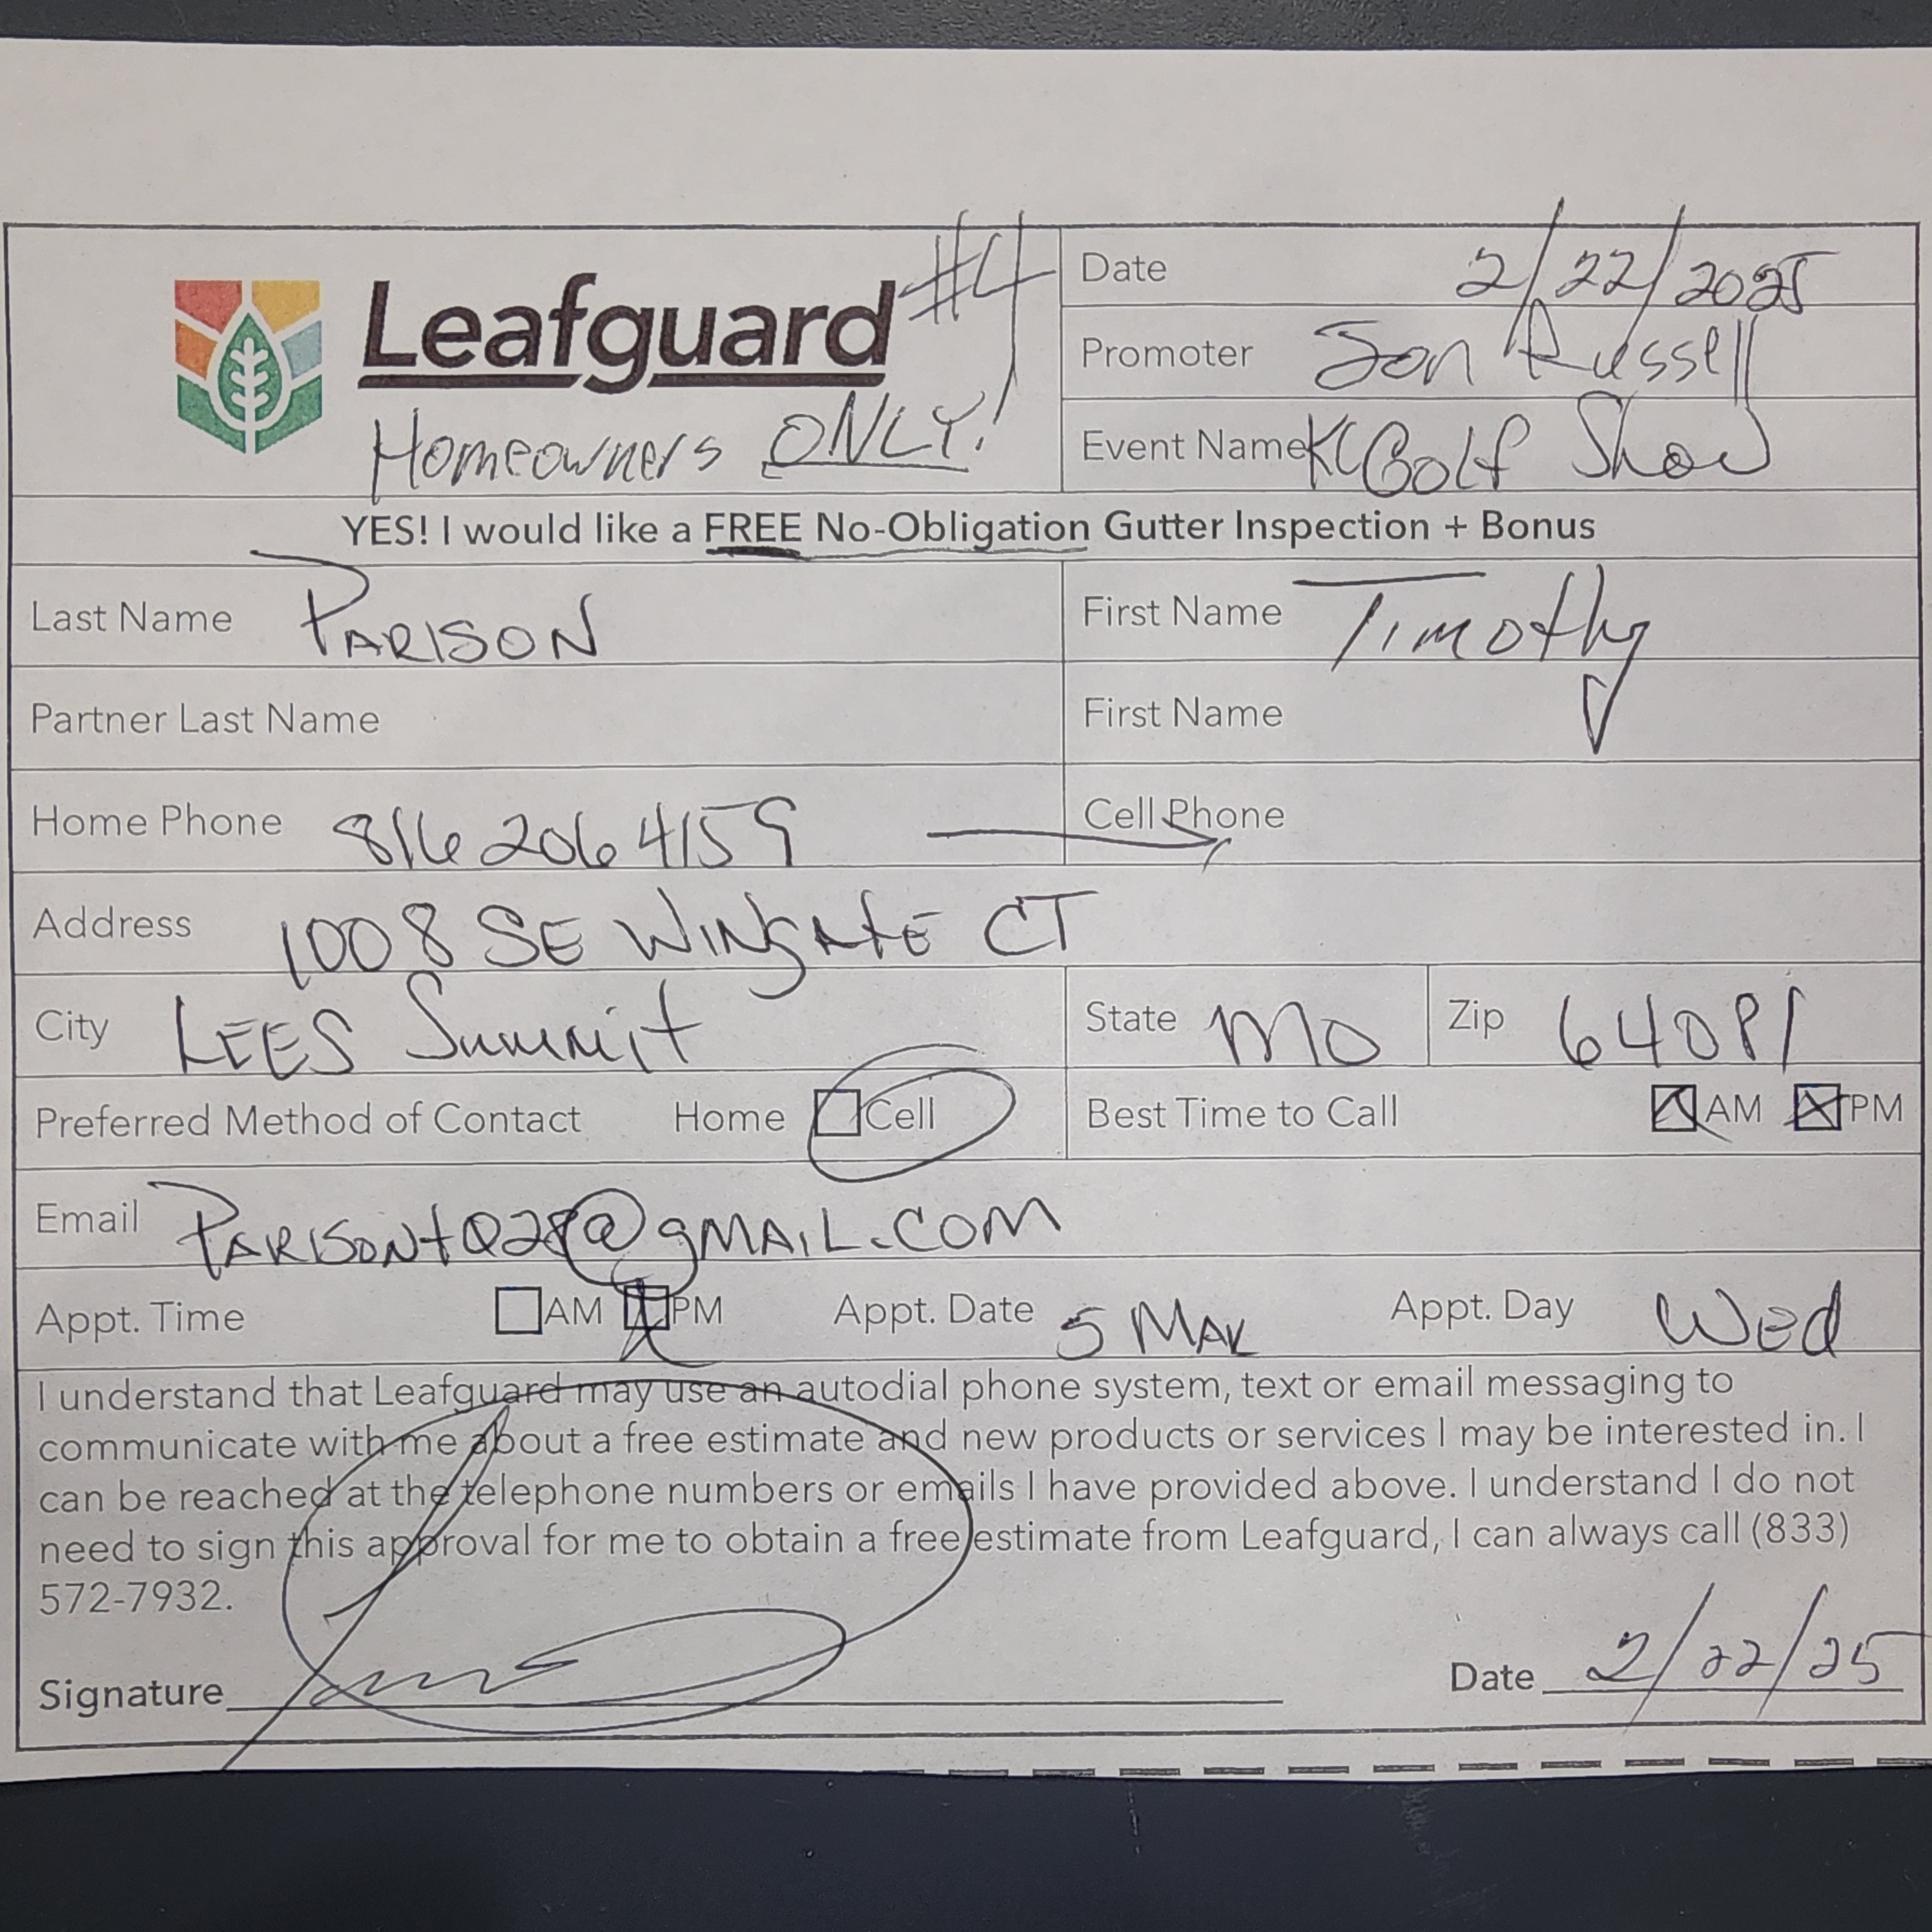 Leafguard #4
Homeowners ONLY!
Date 2/22/2025
Promoter Jon Russell
Event Name KC Golf Show
YES! I would like a FREE No-Obligation Gutter Inspection + Bonus
Last Name PARISON First Name Timothy
Partner Last Name First Name
Home Phone 816 206 4159 Cell Phone
Address 1008 SE WINGATE CT
City LEES Summit State MO Zip 64081
Preferred Method of Contact Home Cell Best Time to Call AM PM
Email
Appt. Time AM PM Appt. Date 5 MAR Appt. Day Wed
I understand that Leafguard may use an autodial phone system, text or email messaging to
communicate with me about a free estimate and new products or services I may be interested in. I
can be reached at the telephone numbers or emails I have provided above. I understand I do not
need to sign this approval for me to obtain a free estimate from Leafguard, I can always call (833)
572-7932.
Signature Date 2/22/25